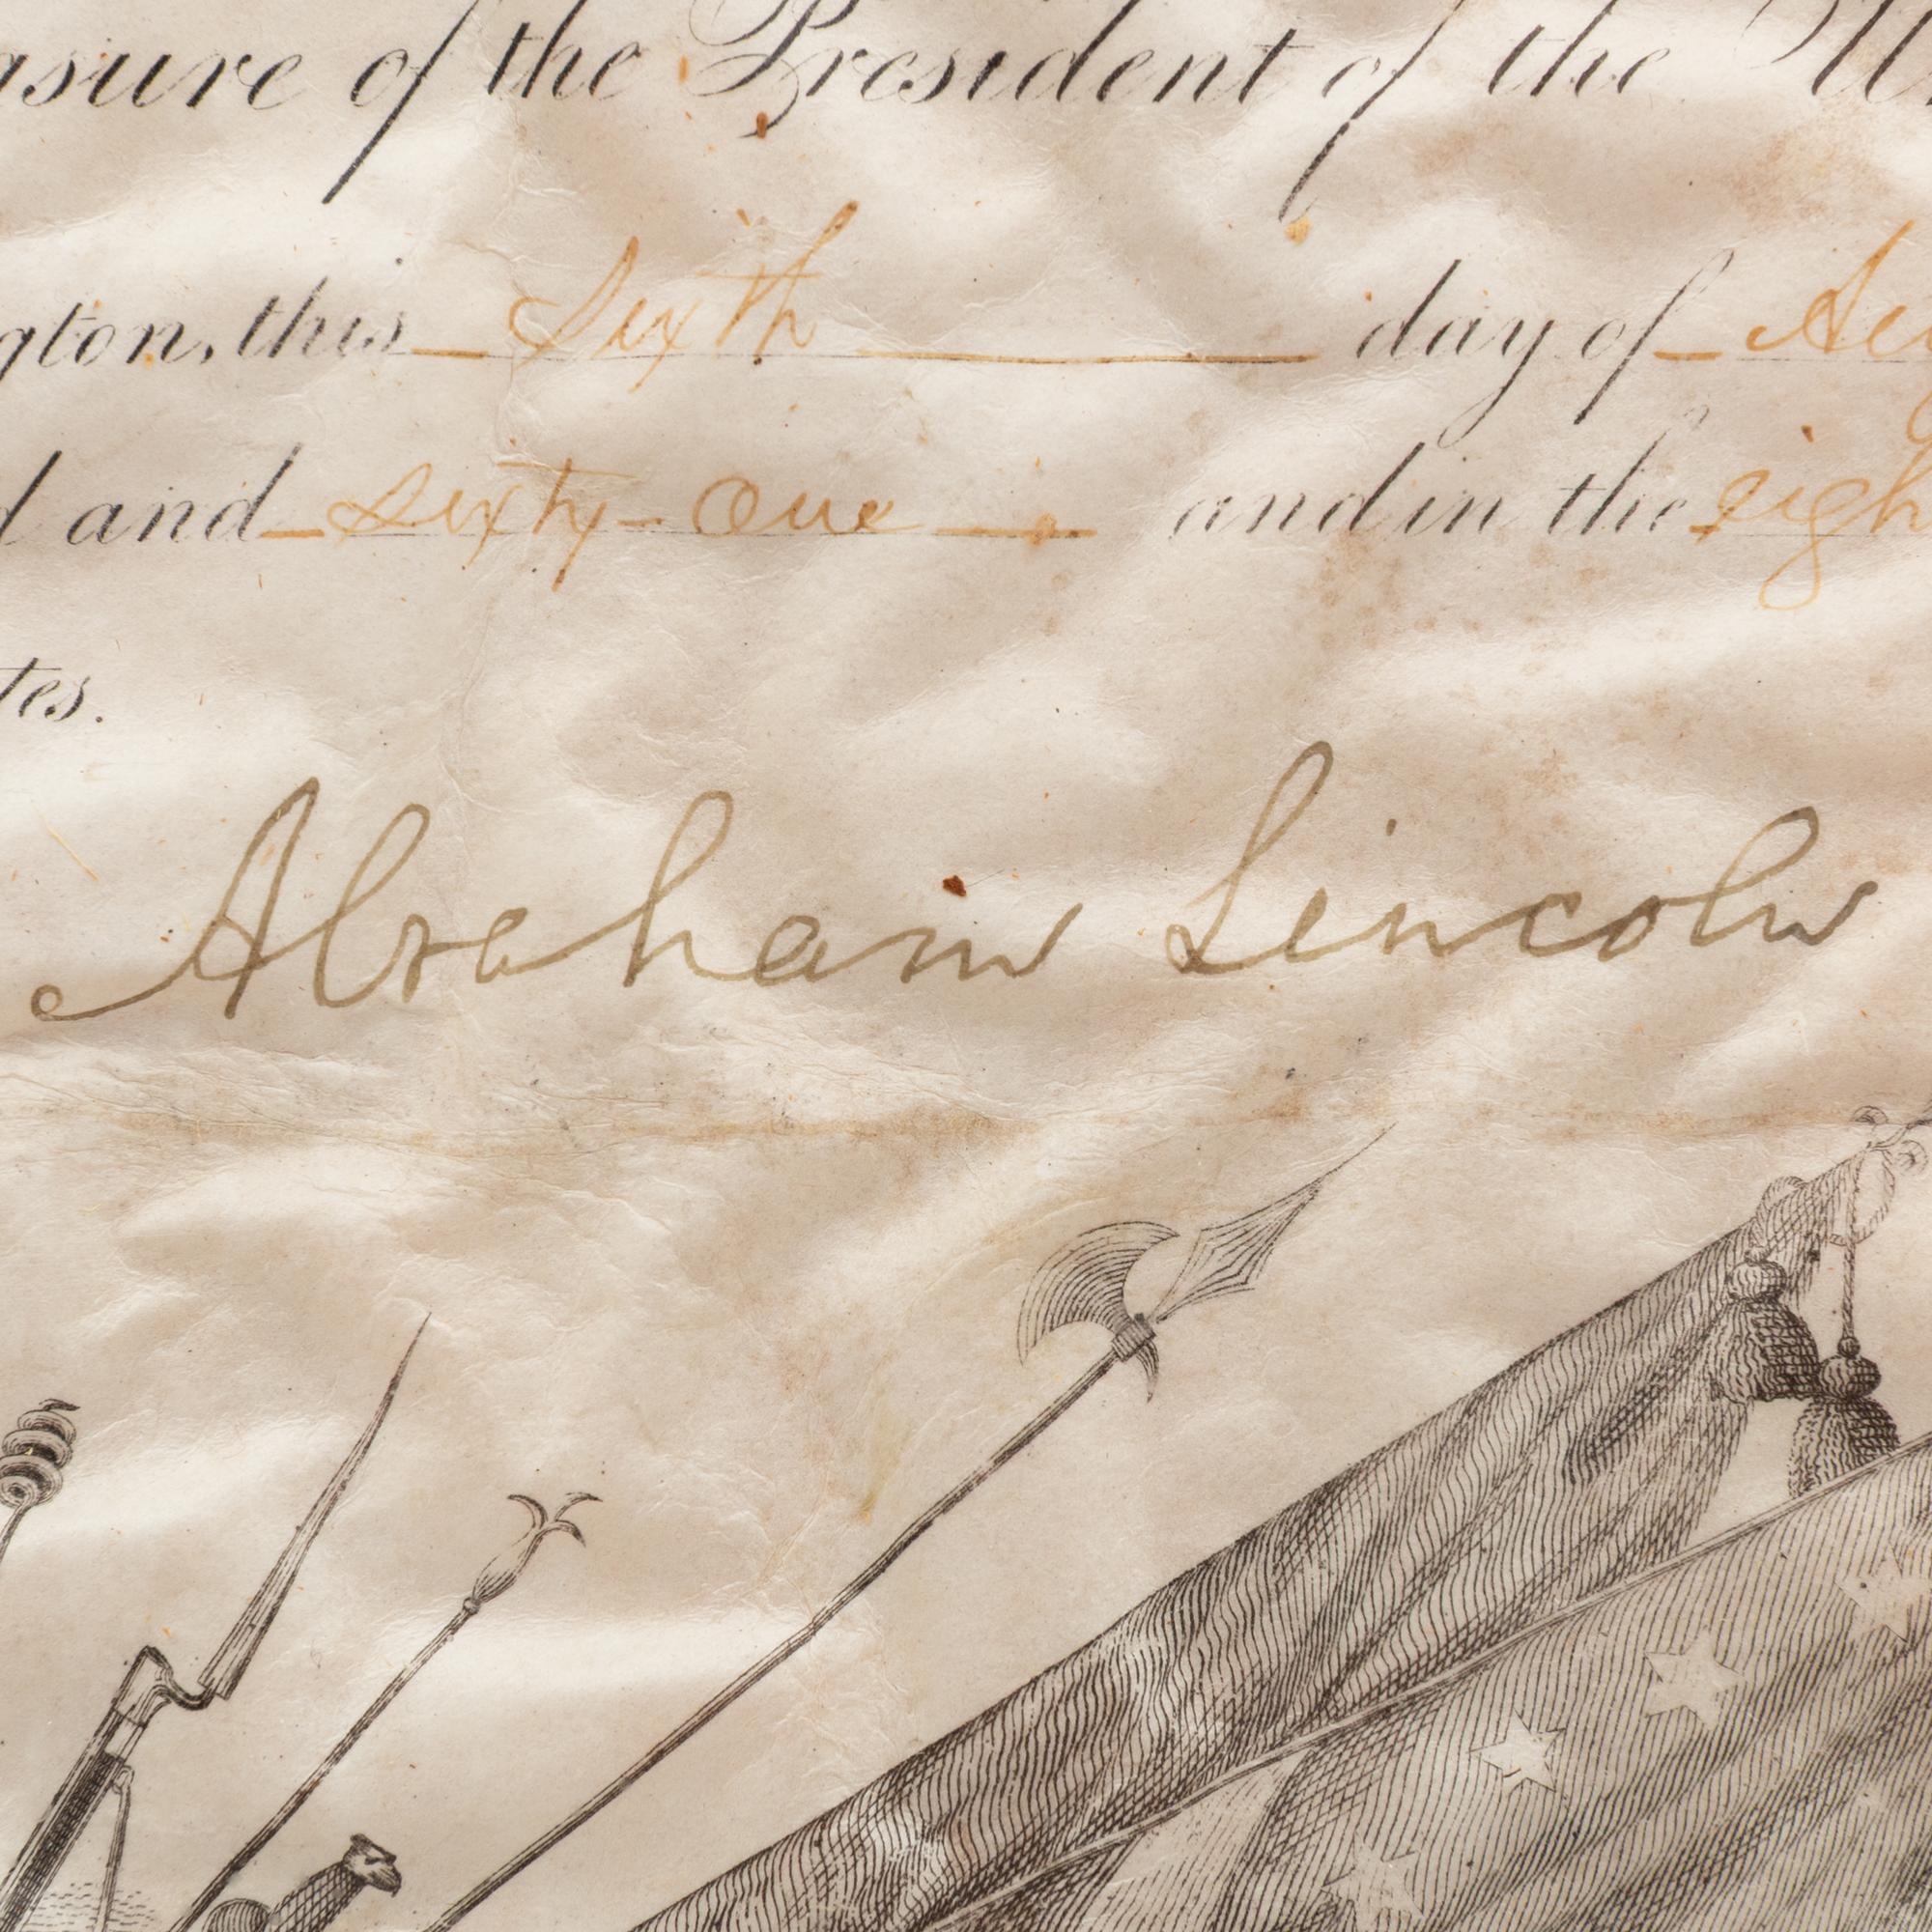 asure of the President of the
gton, this sixth day of
d and sixty-one and in the eigh
tes.
Abraham Lincoln